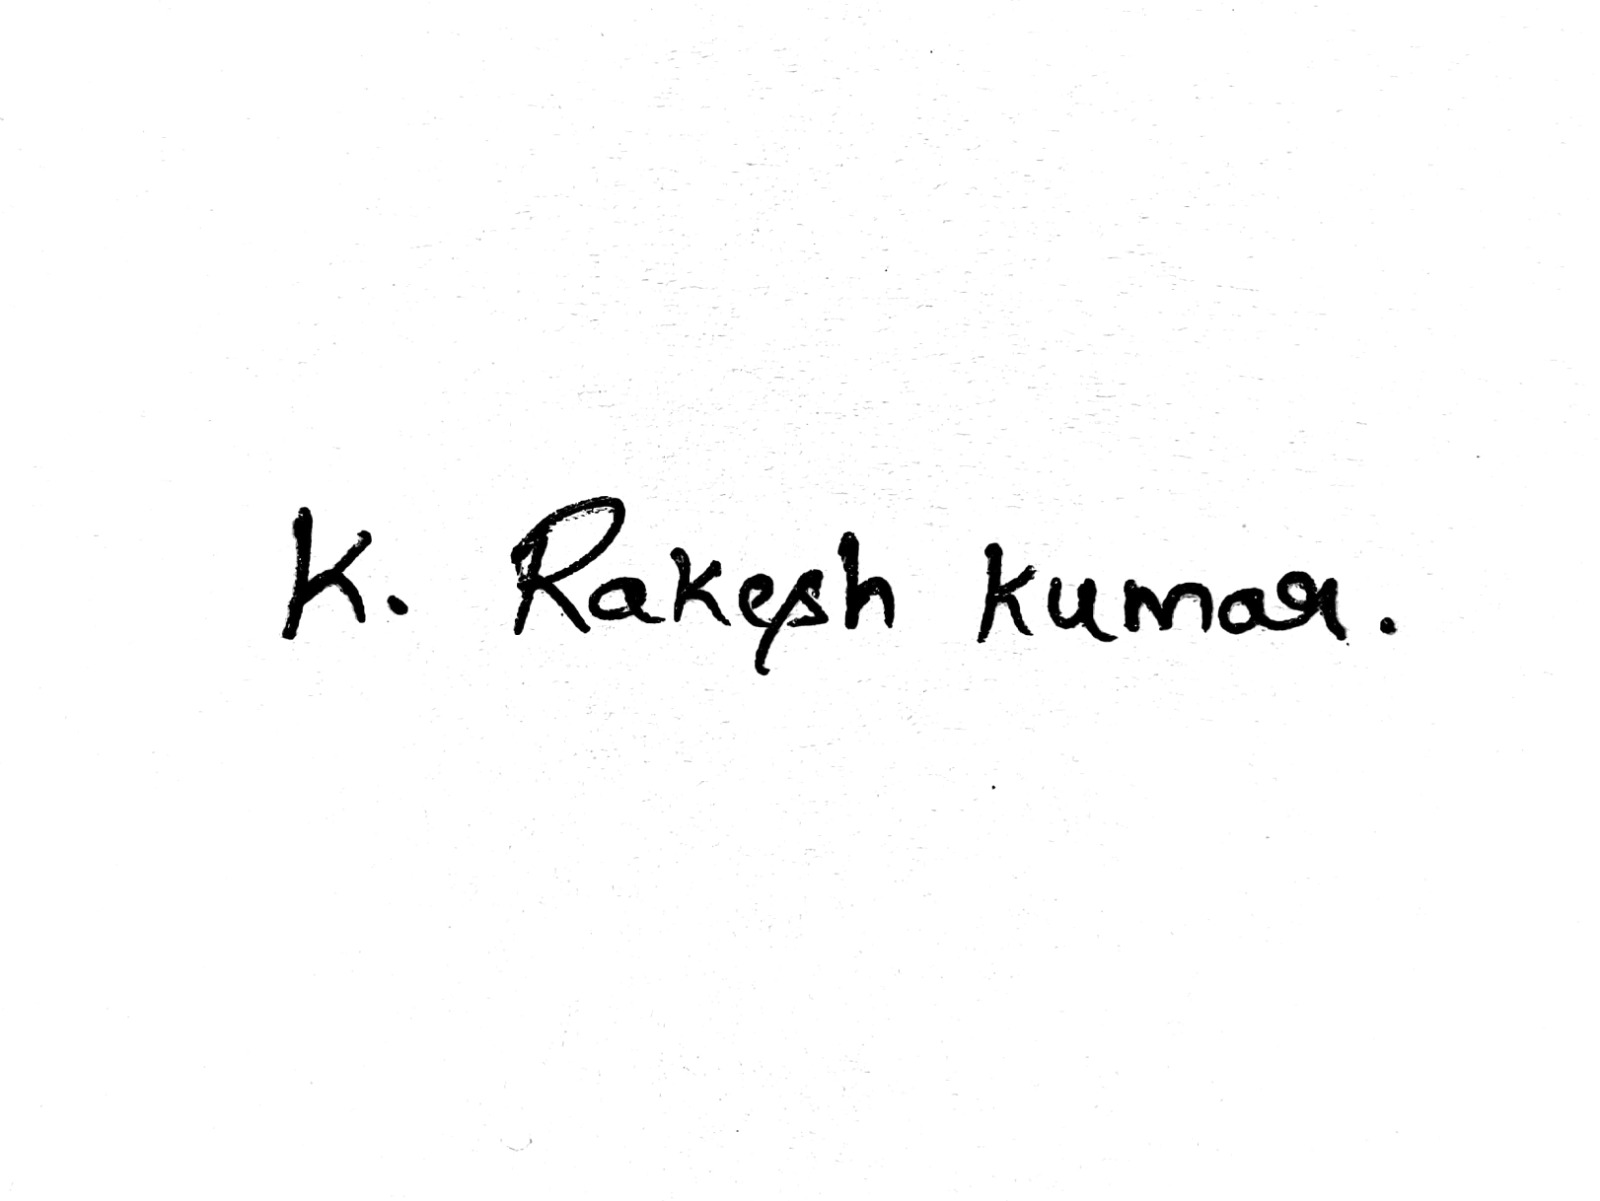 K. Rakesh Kumar.